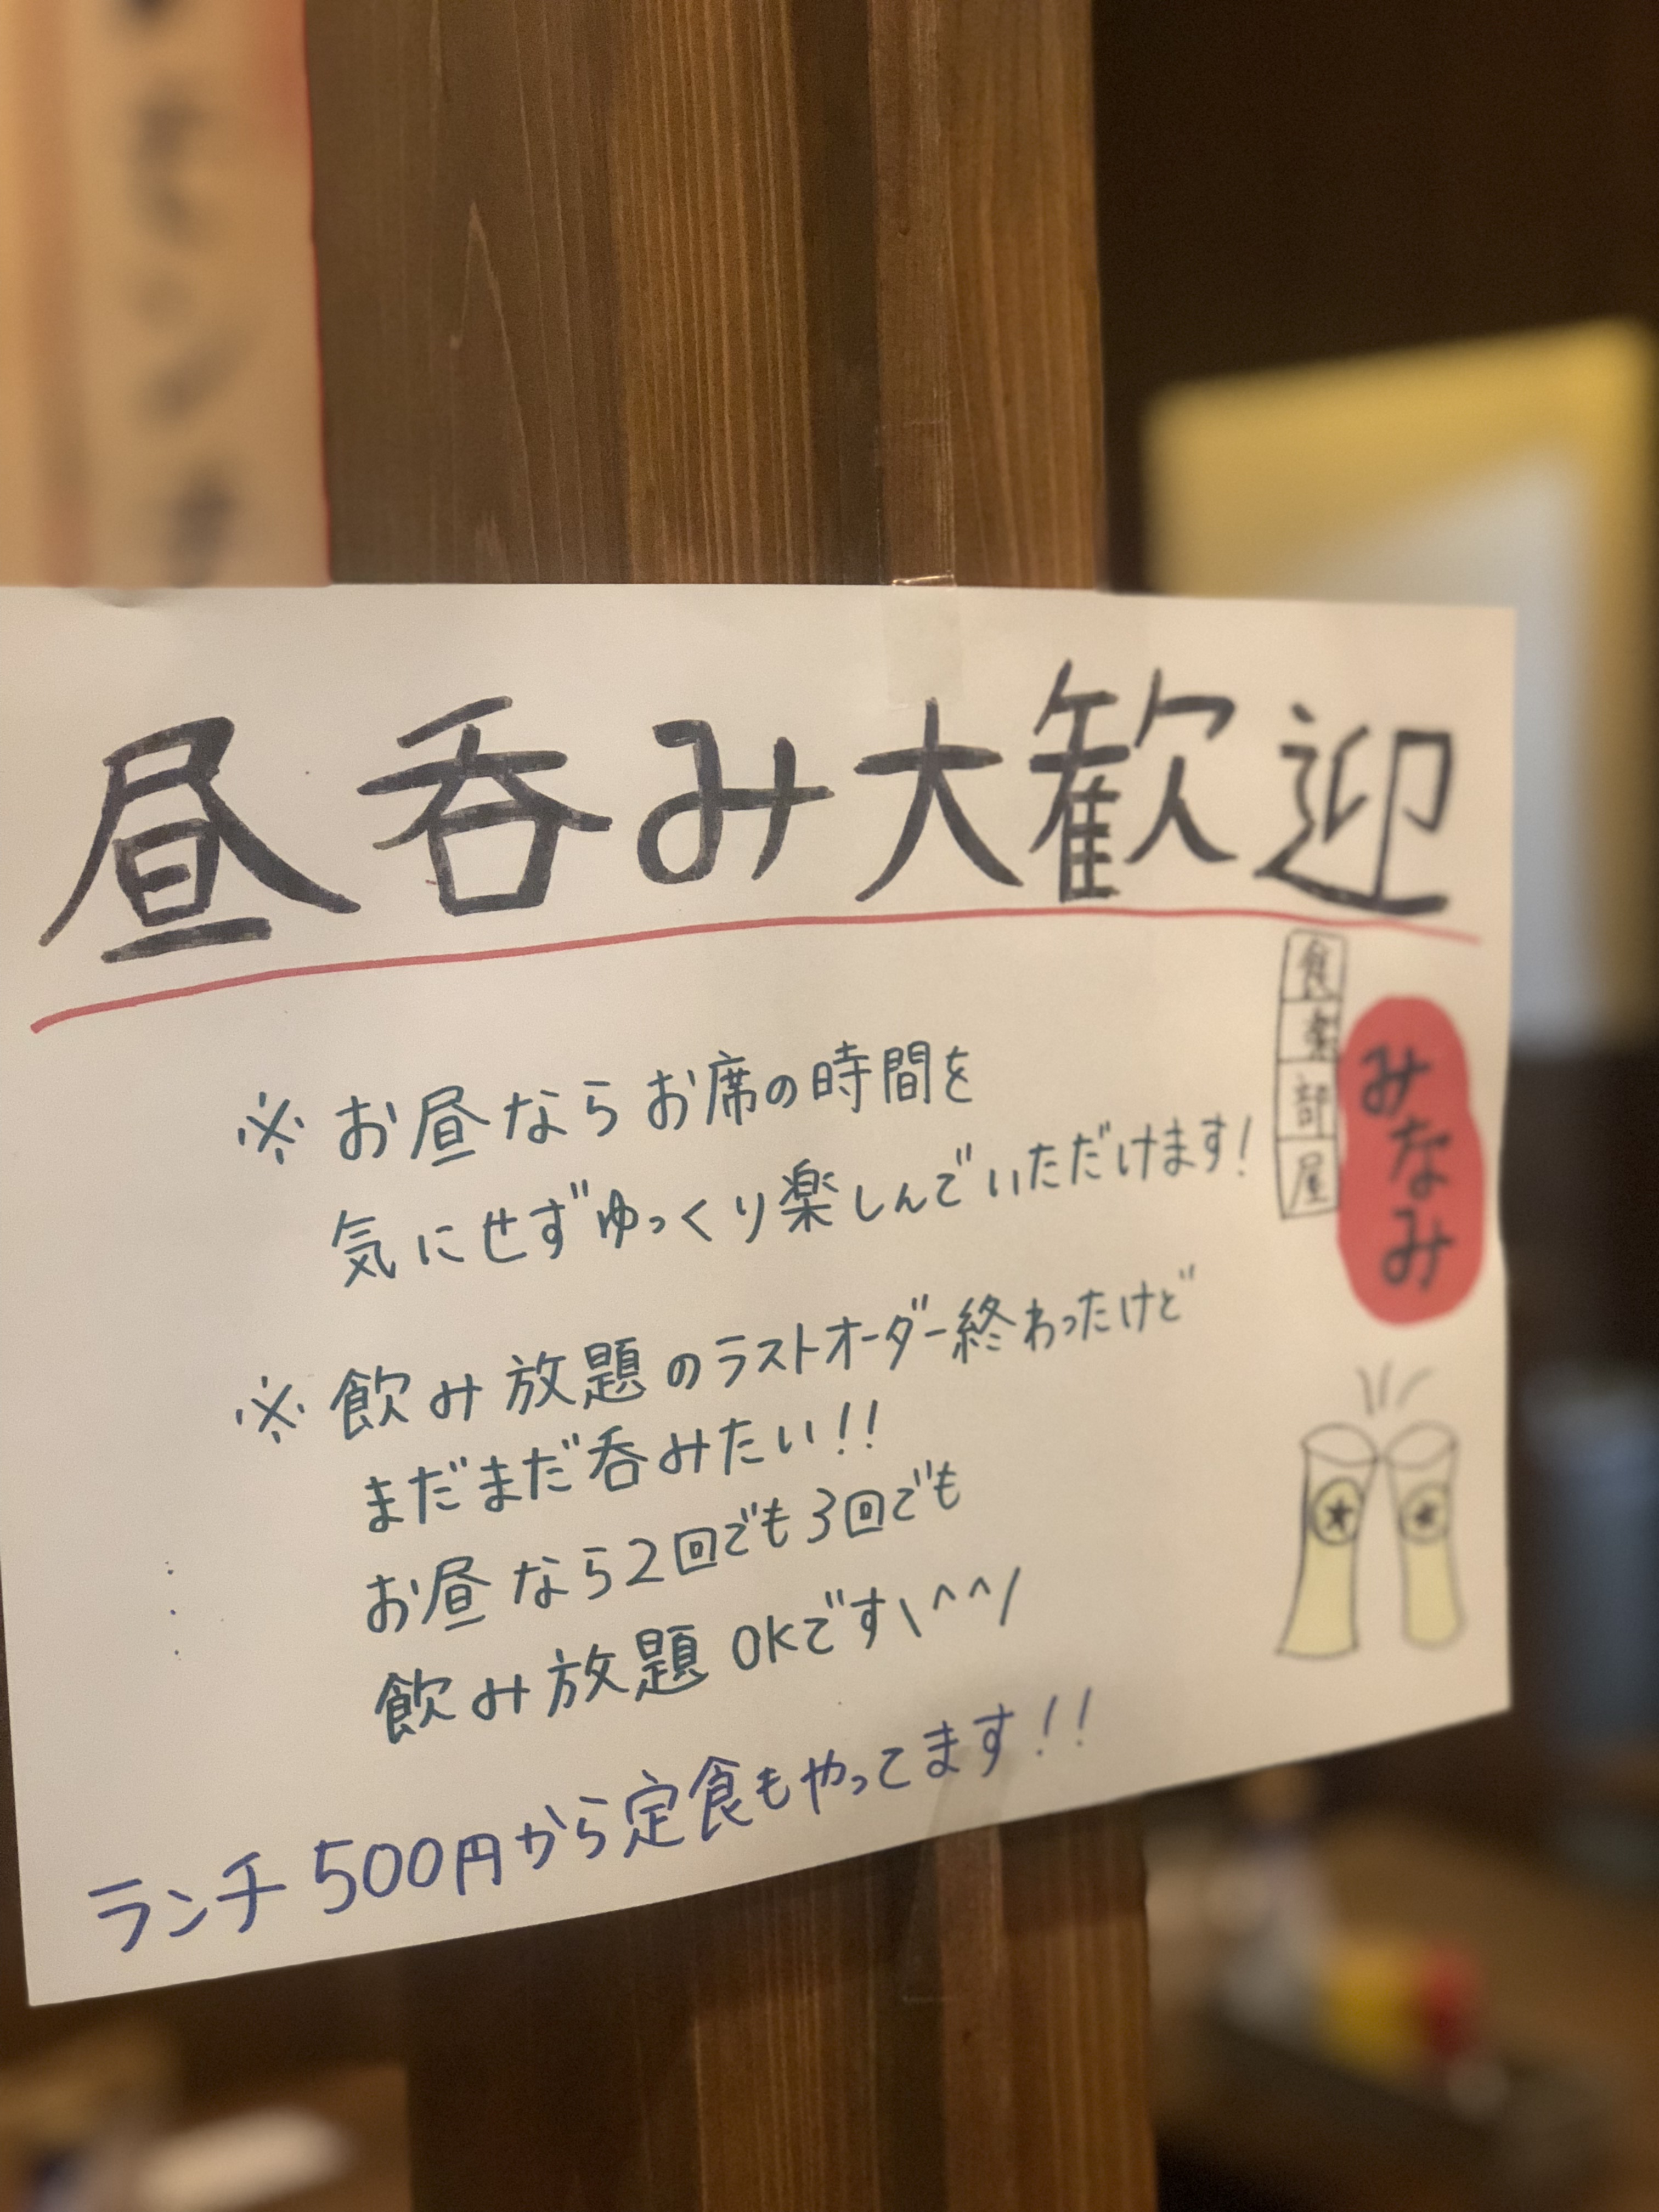 昼呑み大歓迎
※お昼ならお席の時間を
気にせずゆっくり楽しんでいただけます!
食楽部屋
みなみ
※飲み放題のラストオーダー終わったけど
まだまだ呑みたい!!
お昼なら2回でも3回でも
飲み放題OKです\^^/
ランチ500円から定食もやってます!!